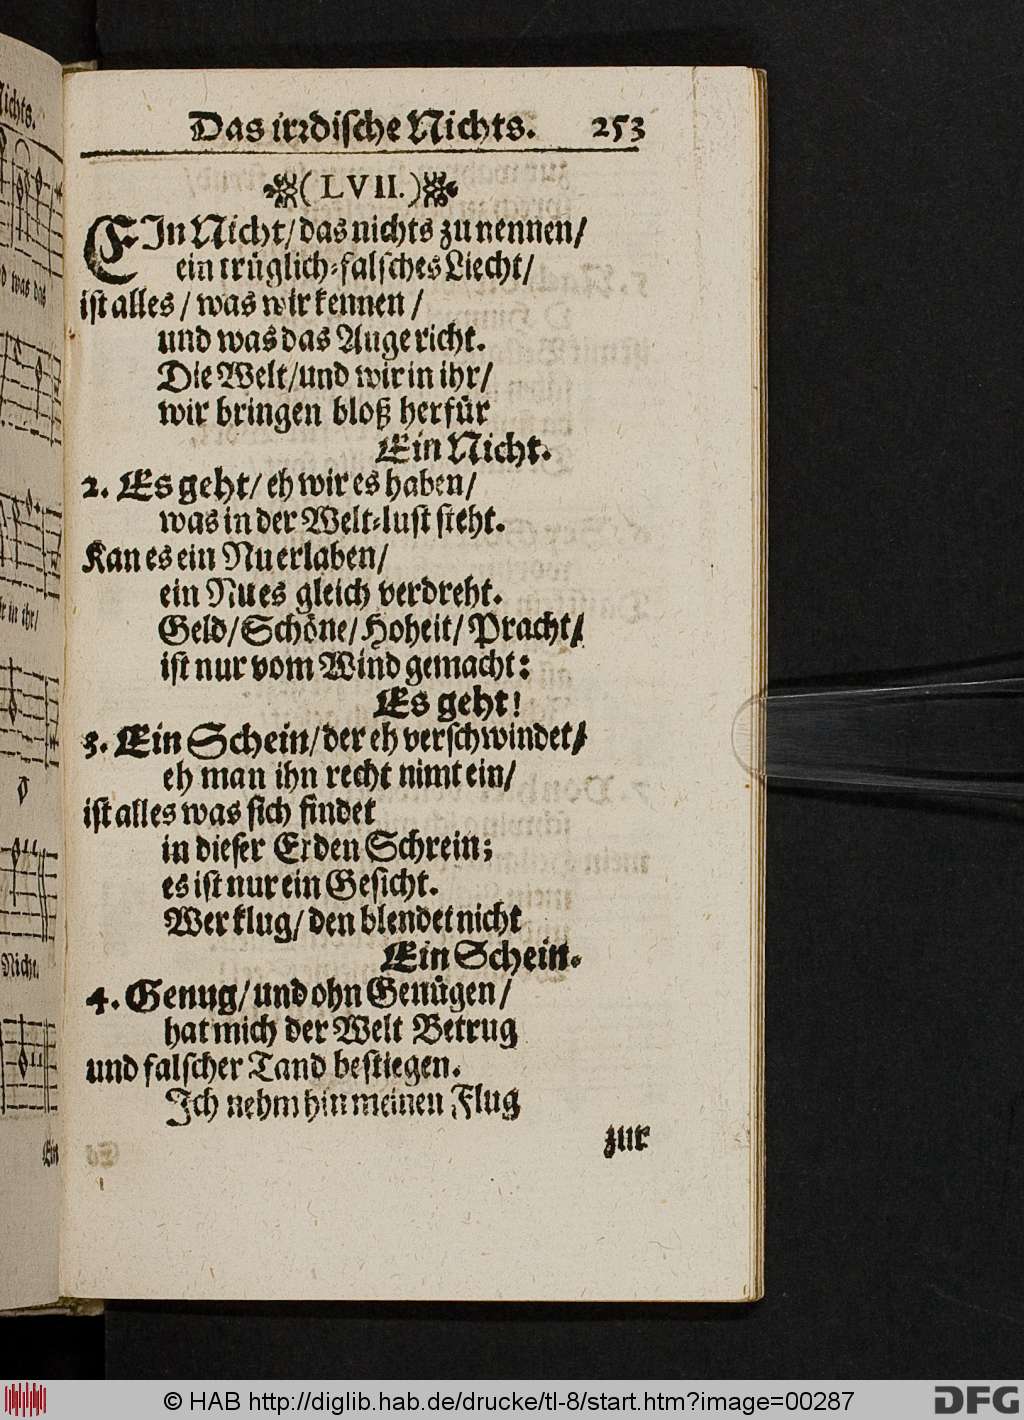 Das irꝛdiſche Nichts. 253
(LVII.)
EIn Nicht/das nichts zu nennen/
ein trüglich-falſches Liecht/
iſt alles / was wir kennen /
und was das Auge richt.
Die Welt/und wir in ihr/
wir bringen bloß herfür
Ein Nicht.
2. Es geht/ eh wir es haben/
was in der Welt-luſt ſteht.
Kan es ein Nu erlaben/
ein Nu es gleich verdreht.
Geld/Schöne/Hoheit/Pracht/
iſt nur vom Wind gemacht:
Es geht!
3. Ein Schein/der eh verſchwindet/
eh man ihn recht nimt ein/
iſt alles was ſich findet
in dieſer Erden Schrein;
es iſt nur ein Geſicht.
Wer klug/ den blendet nicht
Ein Schein.
4. Genug/und ohn Genügen/
hat mich der Welt Betrug
und falſcher Tand beſtiegen.
Ich nehm hin meinen Flug
zur
ichts.
was das
in ihr/
Nicht.
Ein
© HAB http://diglib.hab.de/drucke/tl-8/start.htm?image=00287
DFG